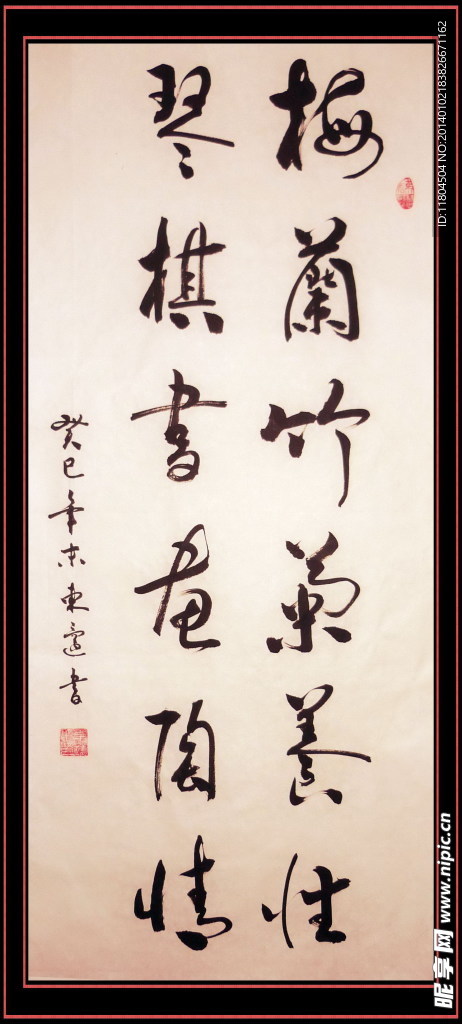 梅蘭竹菊養性
琴棋書畫陶情
癸巳年末東邁書
ID:11804504 NO:20140102183826671162
昵享网 www.nipic.cn